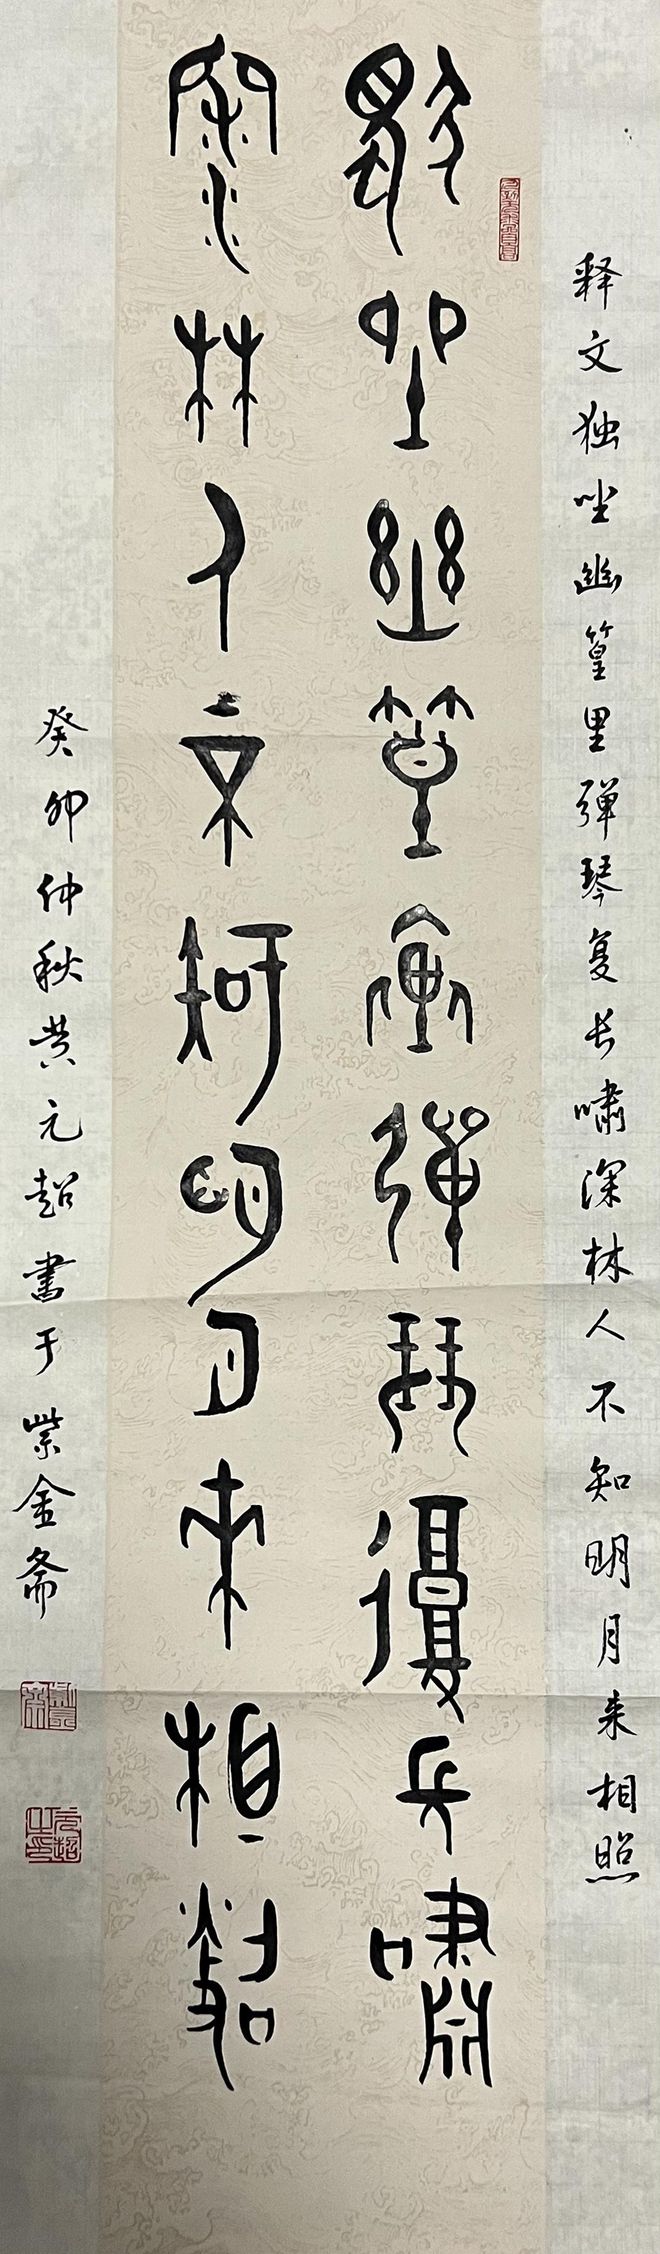 释文独坐幽篁里弹琴复长啸深林人不知明月来相照
独坐幽篁里弹琴复长啸
深林人不知明月来相照
癸卯仲秋黄元超书于紫金斋